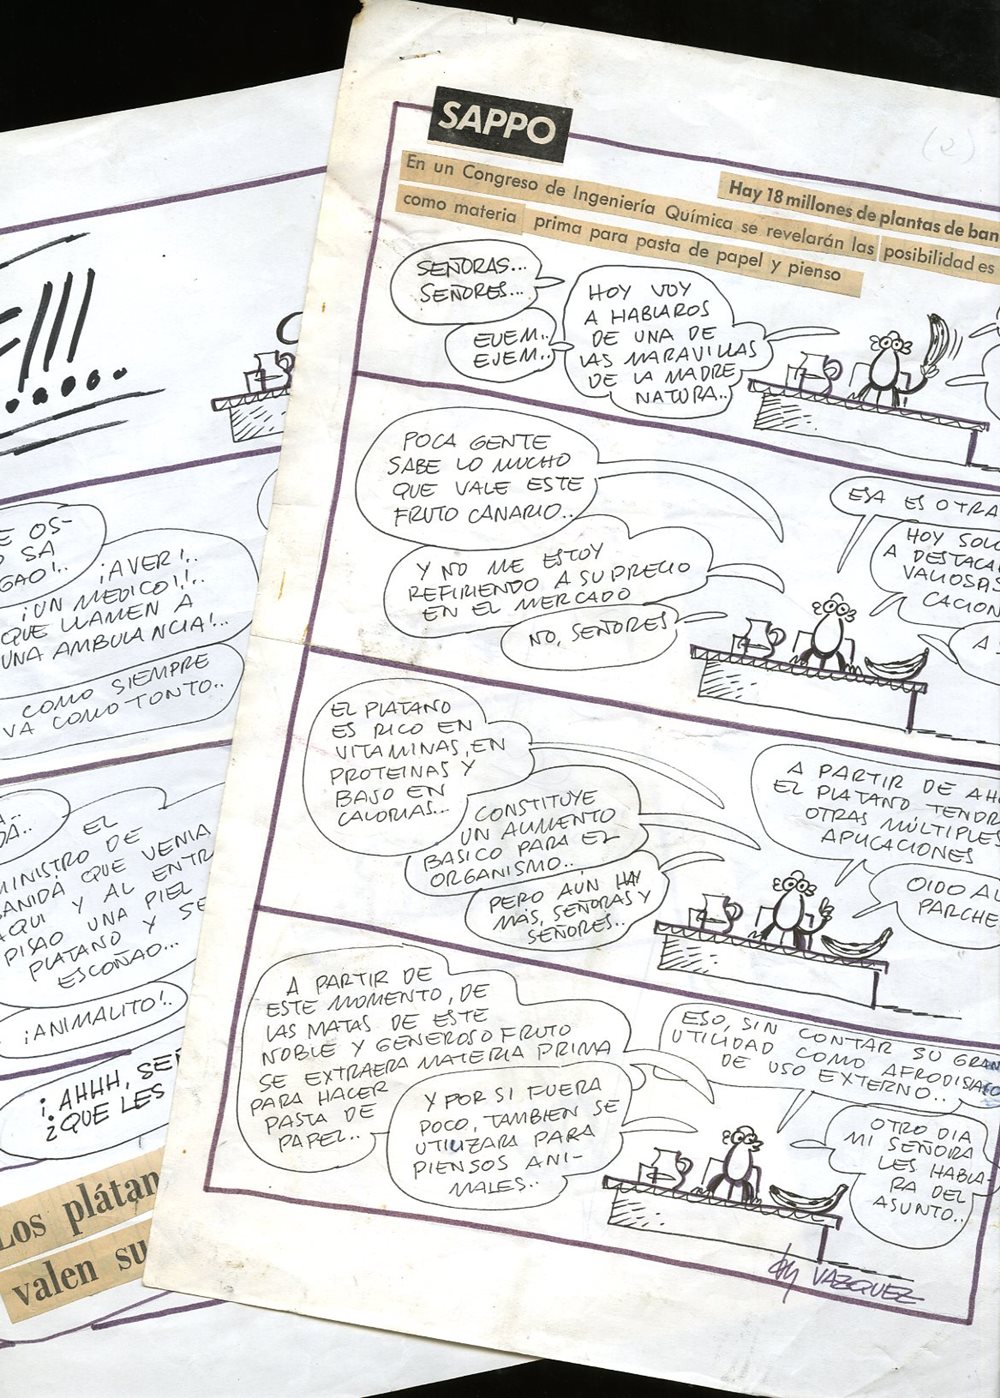 SAPPO
(2)
Hay 18 millones de plantas de ban
En un Congreso de Ingeniería Química se revelarán las posibilidad es
como materia prima para pasta de papel y pienso
SEÑORAS...
SEÑORES...
EJEM..
EJEM..
HOY VOY
A HABLAROS
DE UNA DE
LAS MARAVILLAS
DE LA MADRE
NATURA..
POCA GENTE
SABE LO MUCHO
QUE VALE ESTE
FRUTO CANARIO..
Y NO ME ESTOY
REFIRIENDO A SU PRECIO
EN EL MERCADO
NO, SEÑORES
ESA ES OTRA
HOY SOLO
A DESTACA
VALIOSAS
CACION
A S
EL PLATANO
ES RICO EN
VITAMINAS, EN
PROTEINAS Y
BAJO EN
CALORIAS...
CONSTITUYE
UN ALIMENTO
BASICO PARA EL
ORGANISMO..
PERO AÚN HAY
MÁS, SEÑORAS Y
SEÑORES..
A PARTIR DE AH
EL PLATANO TENDR
OTRAS MÚLTIPLES
APLICACIONES
OIDO AL
PARCHE
A PARTIR DE
ESTE MOMENTO, DE
LAS MATAS DE ESTE
NOBLE Y GENEROSO FRUTO
SE EXTRAERA MATERIA PRIMA
PARA HACER
PASTA DE
PAPEL..
Y POR SI FUERA
POCO, TAMBIEN SE
UTILIZARA PARA
PIENSOS ANI-
MALES..
ESO, SIN CONTAR SU GRAN
UTILIDAD COMO AFRODISIACO
DE USO EXTERNO..
OTRO DIA
MI SEÑORA
LES HABLA-
RA DEL
ASUNTO..
by VAZQUEZ
E OS-
SA
GAO!..
¡AVER!..
¡UN MEDICO!!..
QUE LLAMEN A
UNA AMBULANCIA!..
COMO SIEMPRE
VA COMO TONTO..
EL
MINISTRO DE
SANIDÁ QUE VENIA
AQUI Y AL ENTR
PISAO UNA PIEL
PLATANO Y SE
ESCOÑAO...
¡ANIMALITO!..
¡AHHH, SE
¿QUE LES
Los plátan
valen su